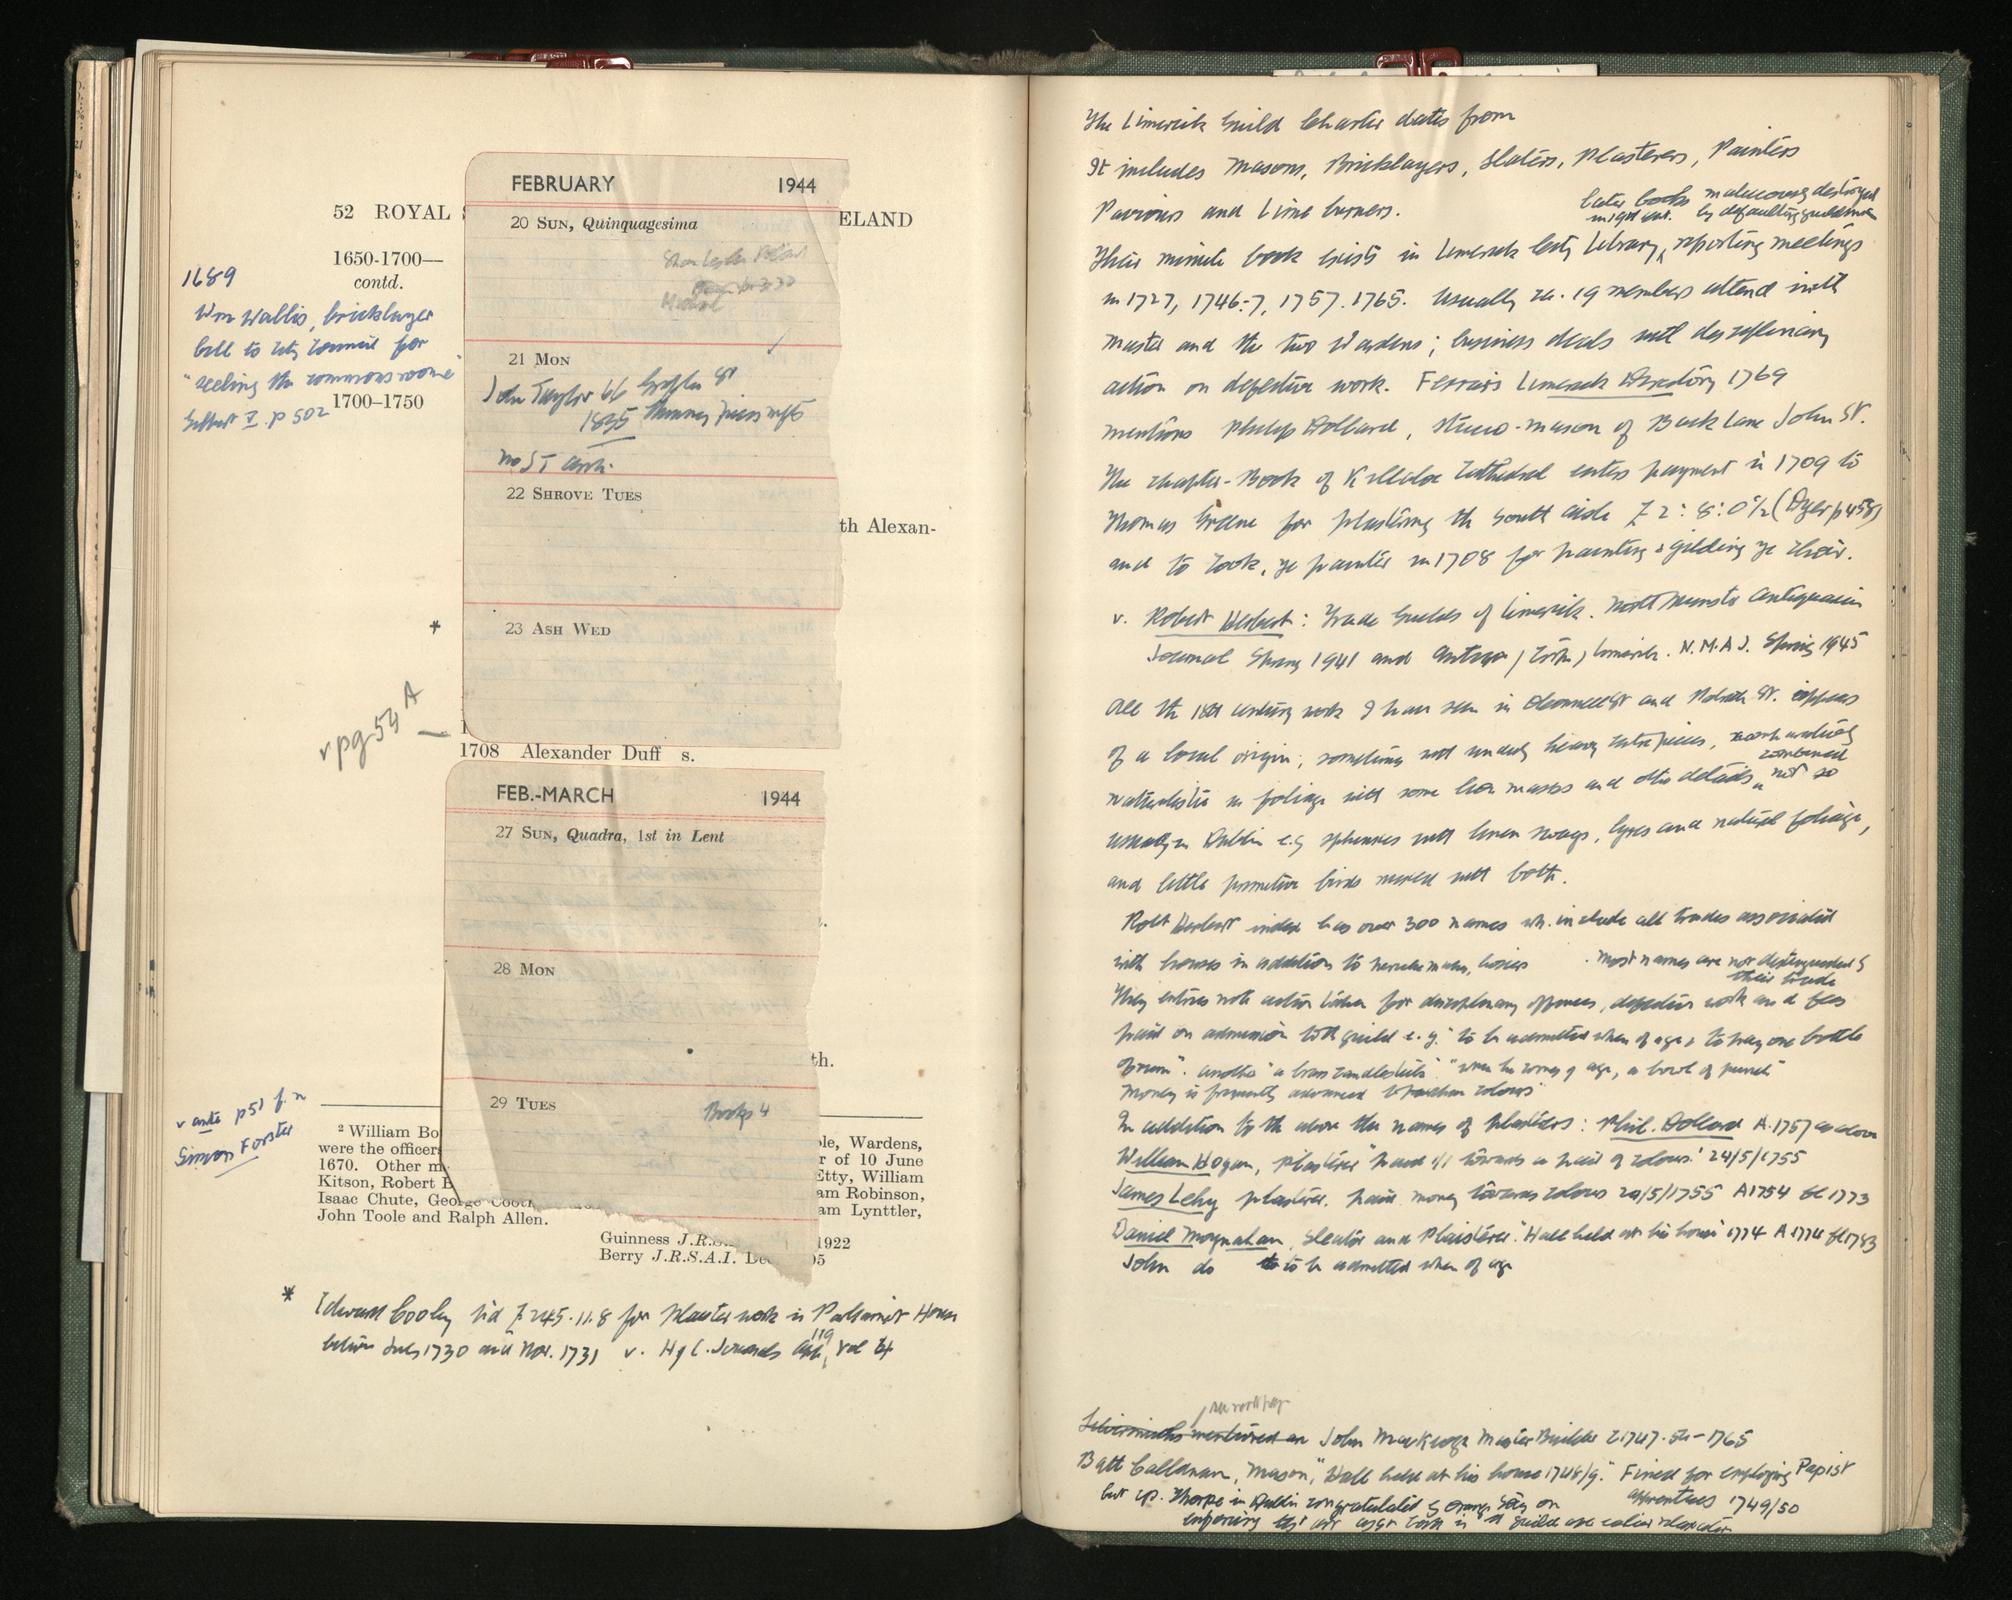 52 ROYAL
ELAND
1650-1700—
contd.
1689
Wm Wallis, bricklayer
bill to City Council for
"ceeling the commons roome"
Gilbert I. p 502
1700–1750
FEBRUARY 1944
20 SUN, Quinquagesima
21 MON
John Taylor 66 Grafton St
1835
22 SHROVE TUES
23 ASH WED
th Alexan-
*
v pg 54 A
1708 Alexander Duff s.
FEB.-MARCH 1944
27 SUN, Quadra, 1st in Lent
28 MON
29 TUES
Books 4
th.
v ante p51 f.n
Simon Forster
2 William Bo
ole, Wardens,
were the officers
r of 10 June
1670. Other m
Etty, William
Kitson, Robert B
am Robinson,
Isaac Chute, George Coot
am Lynttler,
John Toole and Ralph Allen.
Guinness J.R.S. 1922
Berry J.R.S.A.I. De 05
* Edward Cooley bid £245.11.8 for Plaster work in Parliament House
between July 1730 and Nov. 1731 v. H of C. Journals App. 119 Vol
The Limerick Guild Charter dates from
It includes Masons, Bricklayers, Slaters, Plasterers, Painters
Paviours and Lime burners.
later books maliciously destroyed
by defaulting guildsmen
Their minute book exists in Limerick City Library, reporting meetings
in 1727, 1746-7, 1757. 1765. Usually ca. 19 members attend with
master and the two Wardens; business deals with disciplinary
action on defective work. Ferrar's Limerick Directory 1769
mentions Philip Dollard, stucco-mason of Back Lane John St.
The chapter-Book of Killaloe Cathedral enters payment in 1709 to
Thomas Greene for plastering the south aisle £2:8:0½ (Dyer p458)
and to Cook, ye painter in 1708 for painting & gilding ye choir.
v. Robert Herbert: Trade Guilds of Limerick. North Munster Antiquarian
Journal Spring 1941 and Limerick. N.M.A.J. Spring 1945
All the 18th century work I have seen in O'Connell St and St. appears
of a local origin; something with unduly heavy centrepieces,
combined
naturalistic in foliage with some lion masks and other details, not so
usually in Dublin e.g sphinxes with linen swags, lyres and natural foliage,
and little primitive birds mixed with both.
Robt Herbert index has over 300 names wh. include all trades associated
with houses in addition to hosiers . most names are not distinguished by
their trade
They entries note action taken for disciplinary offences, defective work and fees
paid on admission to the guild e.g. "to be admitted when of age & to pay one bottle
of rum". another "a brass candlestick" "when he comes of age, a bowl of punch"
Money is frequently advanced to purchase colours
In addition to the above the names of plasterers: Phil. Dollard A.1757 as above
William Hogan, plasterer "paid 1/1 towards a pair of colours." 24/5/1755
James Lehy plasterer. paid money towards colours 20/5/1755 A1754 fl 1773
Daniel Moynahan, Sleator and Plaisterer. "Hall held at his house" 1774 A 1774 fl 1783
John do to be admitted when of age
Silversmiths mentioned are John MacKeogh Master Builder 1765
Batt Callanan, Mason, "Hall held at his house 1748/9." Fined for employing Papist
apprentices 1749/50
but cp. Thorpe in Dublin congratulated by on